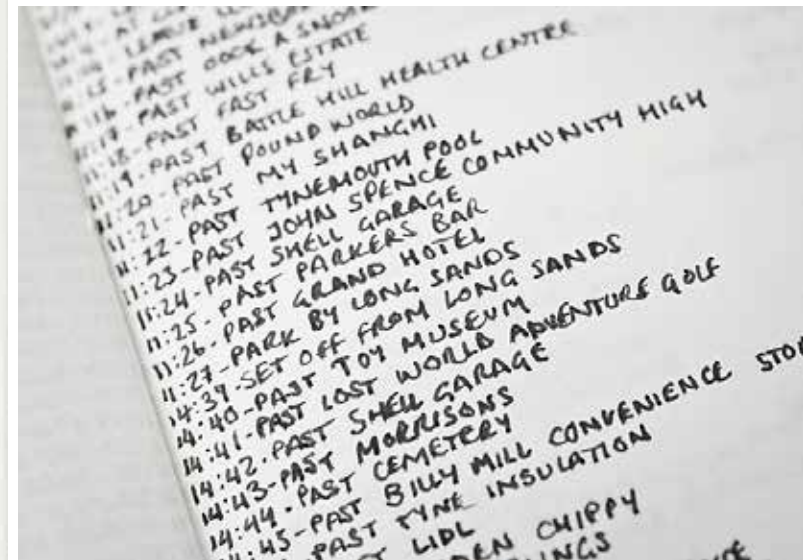 LEAVE
11:15 - PAST
11:16 - PAST DOCK A
11:17 - PAST WILLS ESTATE
11:18 - PAST FAST FRY
11:19 - PAST BATTLE HILL HEALTH CENTRE
11:20 - PAST POUND WORLD
11:21 - PAST MY SHANGHI
11:22 - PAST TYNEMOUTH POOL
11:23 - PAST JOHN SPENCE COMMUNITY HIGH
11:24 - PAST SHELL GARAGE
11:25 - PAST PARKERS BAR
11:26 - PAST GRAND HOTEL
11:27 - PARK BY LONG SANDS
14:39 - SET OFF FROM LONG SANDS
14:40 - PAST TOY MUSEUM
14:41 - PAST LOST WORLD ADVENTURE GOLF
14:42 - PAST SHELL GARAGE
14:43 - PAST MORRISONS
14:44 - PAST CEMETERY
14:45 - PAST BILLY MILL CONVENIENCE STOR
PAST TYNE INSULATION
LIDL
CHIPPY